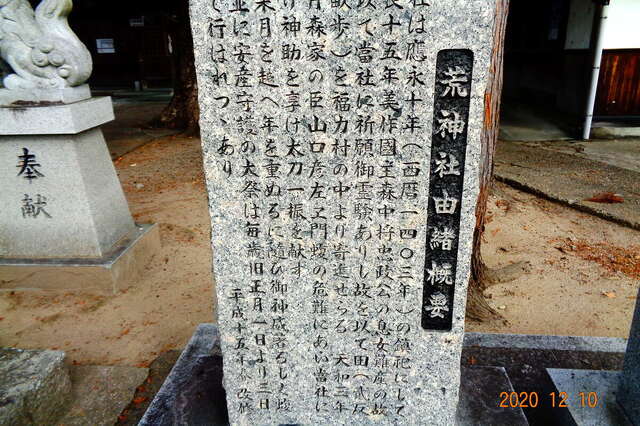 荒神社由緒概要
社は應永十年（西暦一四〇三年）の鎮祀にして
長十五年美作國主森中将忠政公の息女難産の故
以て當社に祈願御霊験ありし故を以て田（貳反
畝歩）を福力村の中より寄進せらる 天和三年
月森家の臣山口彦左ヱ門蝮の危難にあい當社に
け神助を享け太刀一振を献す
来月を越へ年を重ぬるに随ひ御神威著るしく蝮
並に安産守護の大祭は毎歳旧正月一日より三日
て行はれつゝあり
平成十五年 改修
奉
献
2020 12 10